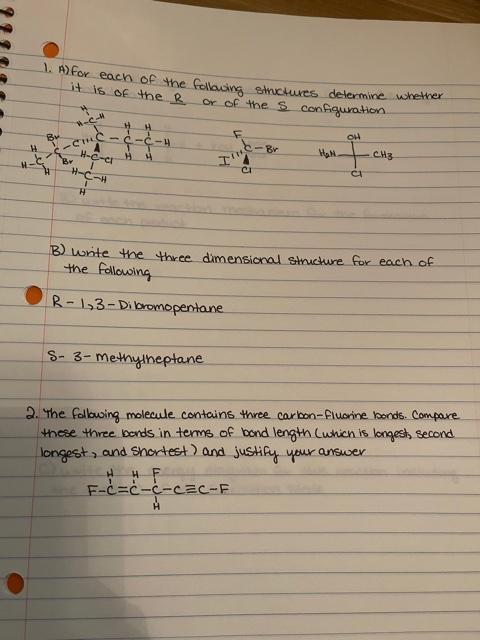 1. A) for each of the following structures determine whether
it is of the R or of the S configuration
H
H-C-H
Br
H C C - C - C - H
H H
H-C Br H-C-Cl H H
H H-C-H
H
F
C - Br
I
Cl
OH
H₂N CH3
Cl
B) write the three dimensional structure for each of
the following
R - 1,3 - Dibromopentane
S - 3 - methylheptane
2. The following molecule contains three carbon-fluorine bonds. Compare
these three bonds in terms of bond length (which is longest, second
longest, and shortest) and justify your answer
H H F
F-C=C-C-C≡C-F
H